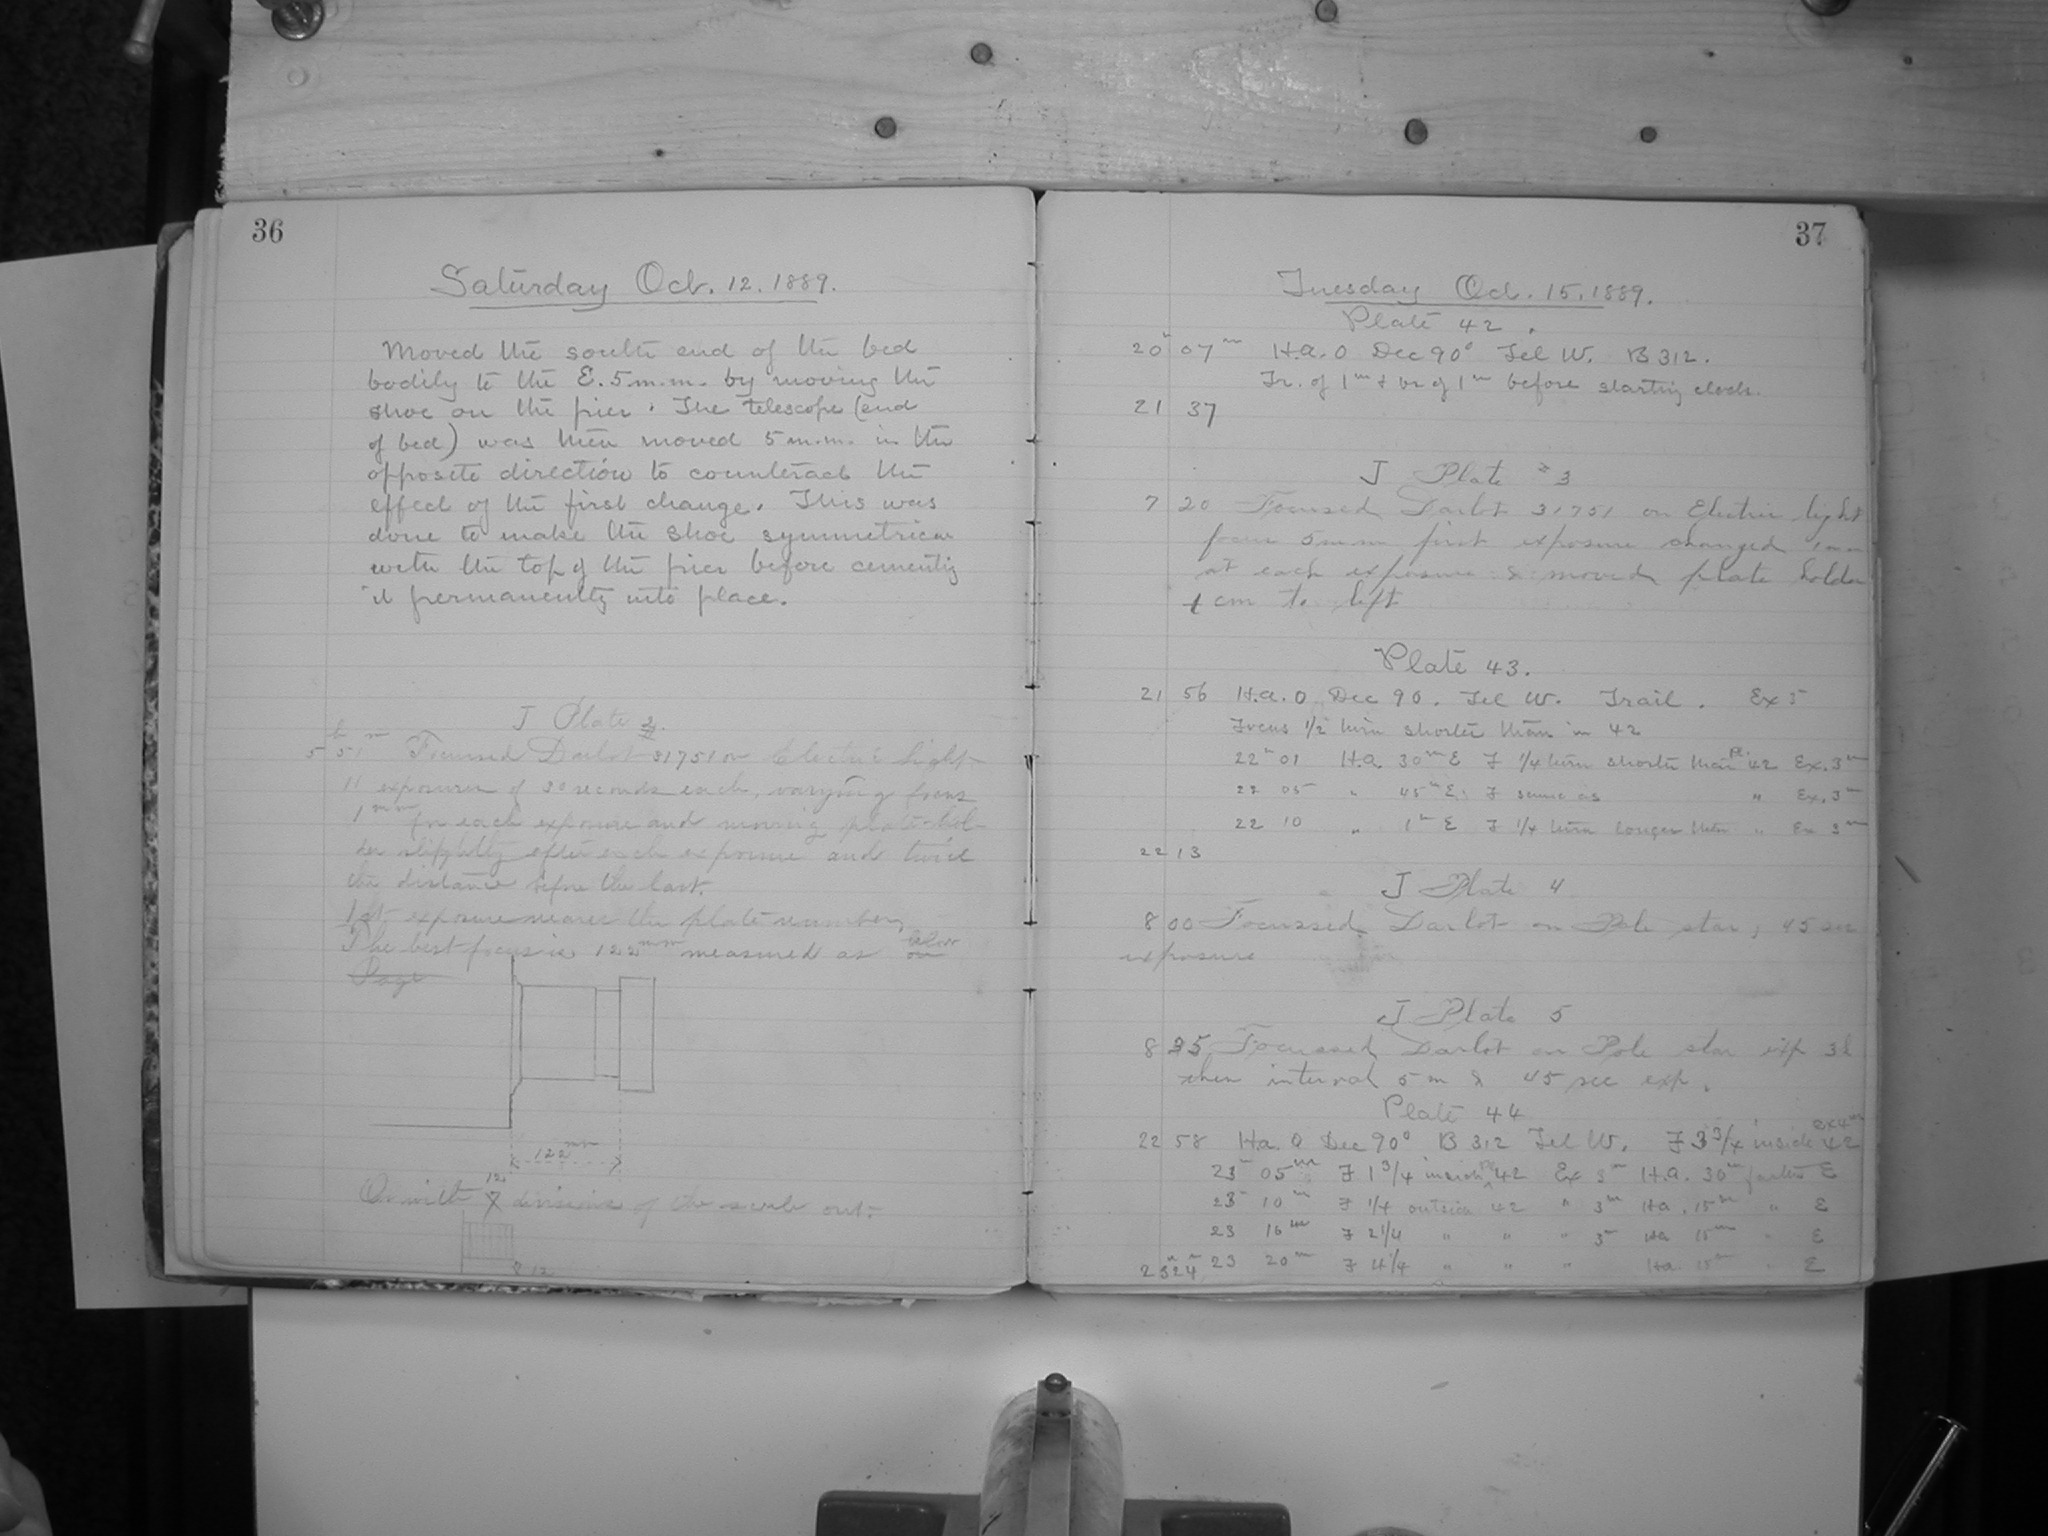 36
Saturday Oct. 12. 1889.
Moved the south end of the bed
bodily to the E. 5 m.m. by moving the
shoe on the pier. The telescope (end
of bed) was then moved 5 m.m. in the
opposite direction to counteract the
effect of the first change. This was
done to make the shoe symmetrical
with the top of the pier before cementing
it permanently into place.
J Plate 2.
5h 51m Focussed Darlot 31751 on Electric light
11 exposures of 30 seconds each, varying focus
1mm for each exposure and moving plate-hol-
der slightly after each exposure and twice
the distance before the last.
1st exposure nearer the plate number.
The best focus is 122mm measured as below
Page
122mm
12
Or with 7 divisions of the scale out.
8 12
37
Tuesday Oct. 15, 1889.
Plate 42.
20h 07m H.a. 0 Dec 90° Tel W. B 312.
Tr. of 1m & br of 1m before starting clock.
21 37
J Plate 3
7 20 Focussed Darlot 31751 on Electric light
focus 5mm first exposure changed 1mm
at each exposure & moved plate holder
1 cm to left
Plate 43.
21 56 H.a. 0 Dec 90. Tel W. Trail. Ex 5
Focus 1/2 turn shorter than in 42
22h 01 H.a. 30m E F 1/4 turn shorter than pl. 42 Ex. 3m
22 05 " 45m E. F same as " Ex. 3m
22 10 " 1h E F 1/4 turn longer than " Ex 3m
22 13
J Plate 4
8 00 Focussed Darlot on Pole star, 45 sec
exposure
J Plate 5
8 35 Focussed Darlot on Pole star exp 3h
then interval 5 m & 45 sec exp.
Plate 44
ex 4m
22 58 H.a. 0 Dec 90° B 312 Tel W. F 3 3/4 inside 42
23h 05m F 1 3/4 inside pl 42 Ex 3m H.a. 30m farther E
23h 10m F 1/4 outside 42 " 3m Ha. 15m " E
23 16m F 2 1/4 " " " 3m Ha 15m " E
23h 24m 23 20m F 4 1/4 " " " Ha. 15m " E